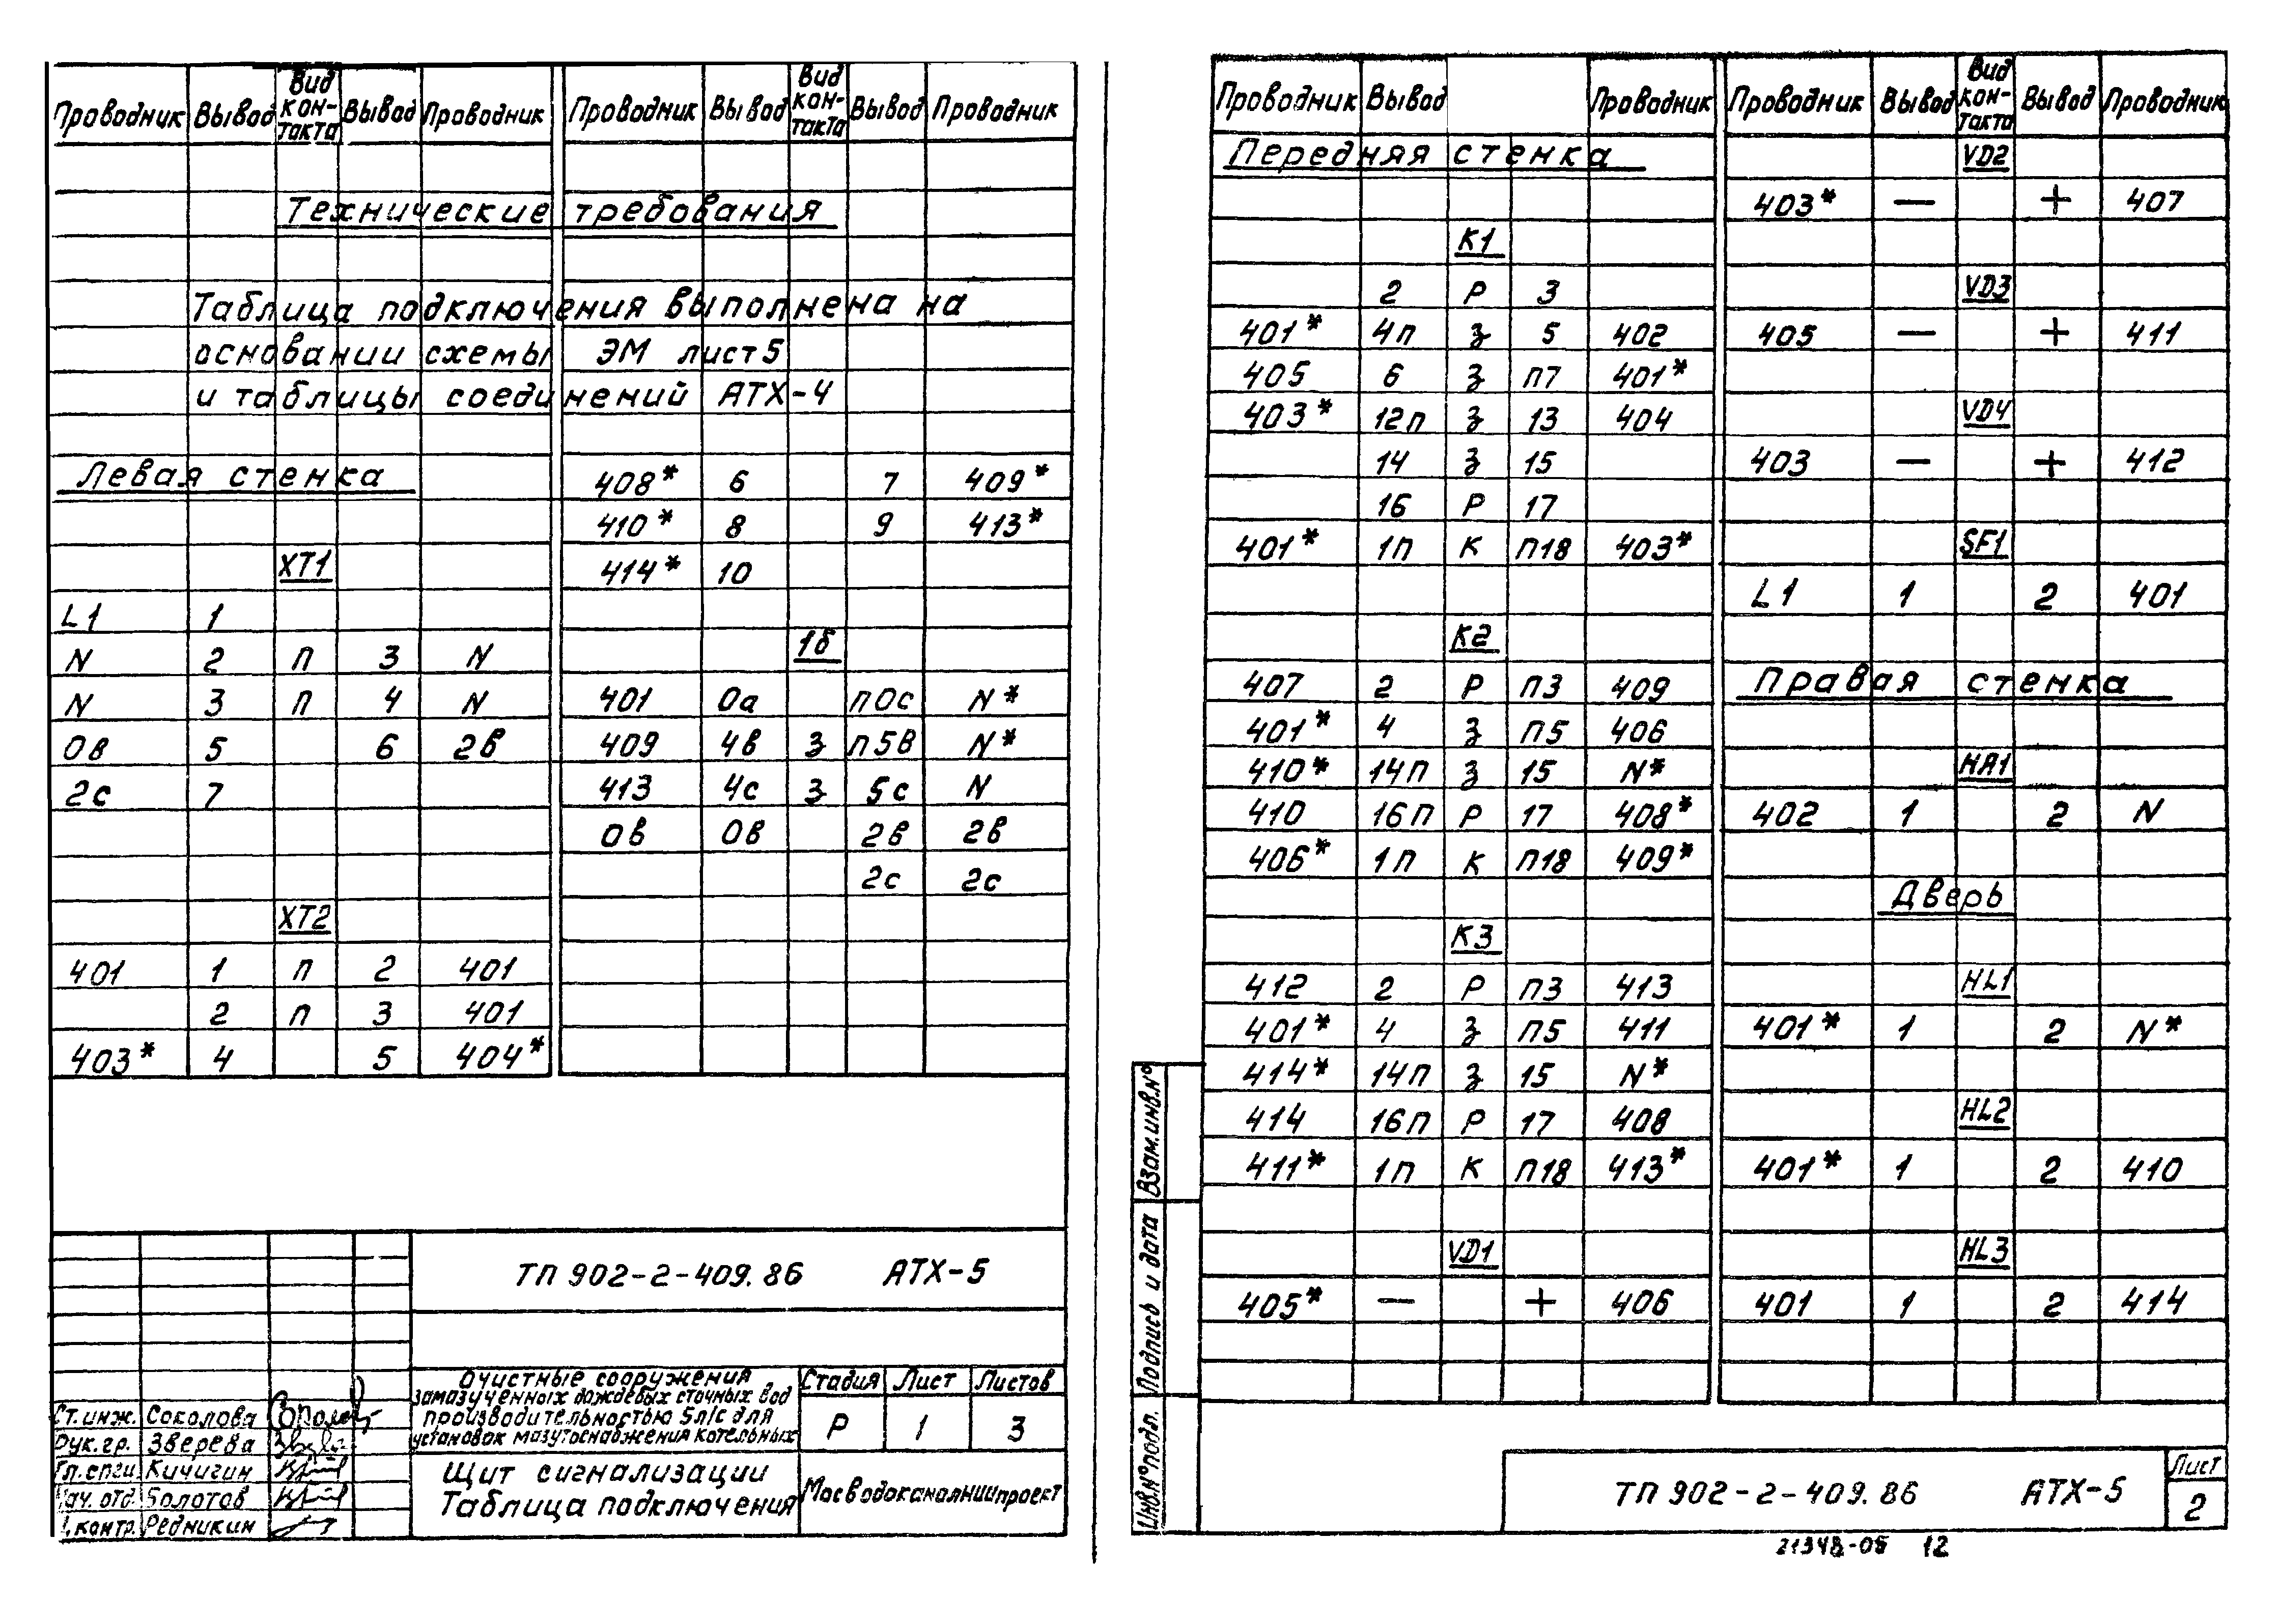 Проводник Вывод Вид кон-такта Вывод Проводник Проводник Вывод Вид кон-такта Вывод Проводник
Технические требования
Таблица подключения выполнена на
основании схемы ЭМ лист 5
и таблицы соединений АТХ-4
Левая стенка
ХТ1
L1 1
N 2 П 3 N
N 3 П 4 N
0в 5 6 2в
2с 7
ХТ2
401 1 П 2 401
2 П 3 401
403* 4 5 404*
408* 6 7 409*
410* 8 9 413*
414* 10
1б
401 0а П0с N*
409 4в З П5в N*
413 4с З 5с N
0в 0в 2в 2в
2с 2с
ТП 902-2-409.86 АТХ-5
Очистные сооружения
замазученных дождевых сточных вод
производительностью 5л/с для
установок мазутоснабжения котельных
Стадия Лист Листов
Р 1 3
Щит сигнализации
Таблица подключения
Мосводоканалниипроект
Ст.инж. Соколова
Рук.гр. Зверева
Гл.спец. Кичигин
Нач.отд. Болотов
Н.контр. Редникин
Проводник Вывод Проводник Проводник Вывод Вид кон-такта Вывод Проводник
Передняя стенка
К1
2 Р 3
401* 4П З 5 402
405 6 З П7 401*
403* 12П З 13 404
14 З 15
16 Р 17
401* 1П К П18 403*
К2
407 2 Р П3 409
401* 4 З П5 406
410* 14П З 15 N*
410 16П Р 17 408*
406* 1П К П18 409*
К3
412 2 Р П3 413
401* 4 З П5 411
414* 14П З 15 N*
414 16П Р 17 408
411* 1П К П18 413*
VD1
405* — + 406
VD2
403* — + 407
VD3
405 — + 411
VD4
403 — + 412
SF1
L1 1 2 401
Правая стенка
НА1
402 1 2 N
Дверь
HL1
401* 1 2 N*
HL2
401* 1 2 410
HL3
401 1 2 414
Взам.инв.№
Подпись и дата
Инв.№подл.
ТП 902-2-409.86 АТХ-5
Лист
2
12